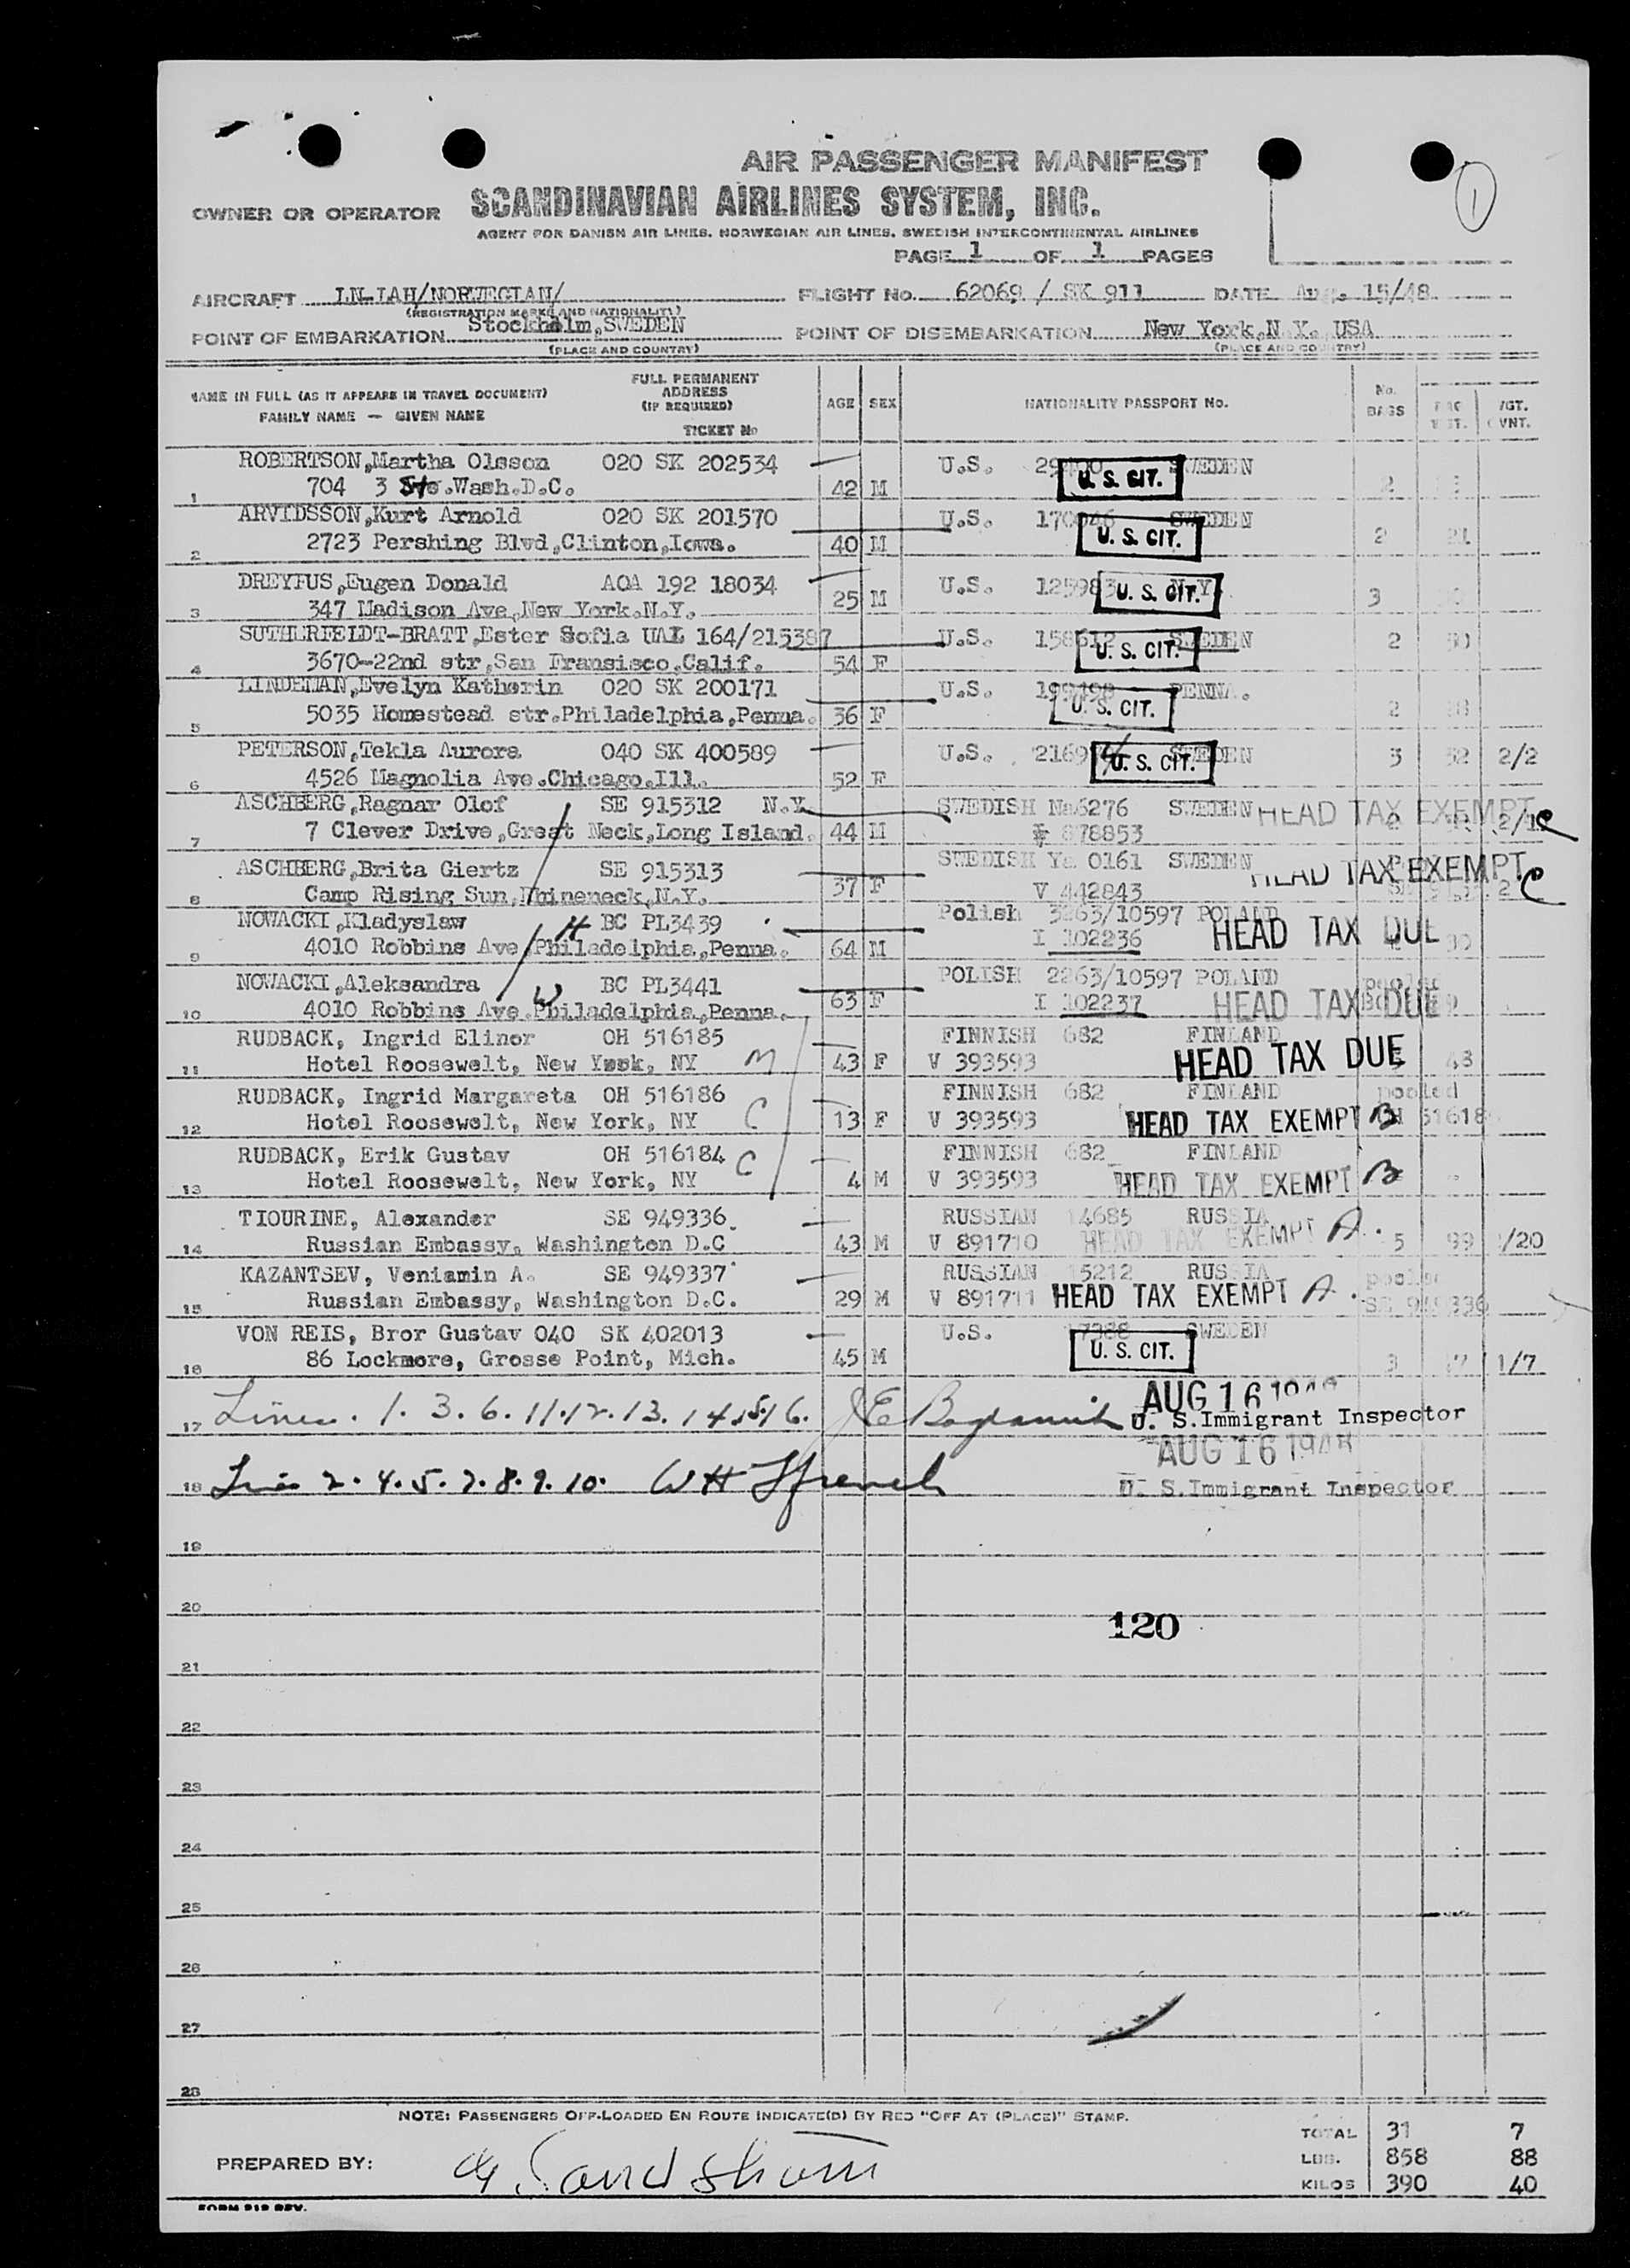 AIR PASSENGER MANIFEST
1
OWNER OR OPERATOR SCANDINAVIAN AIRLINES SYSTEM, INC.
AGENT FOR DANISH AIR LINES. NORWEGIAN AIR LINES. SWEDISH INTERCONTINENTAL AIRLINES
PAGE 1 OF 1 PAGES
AIRCRAFT LN-IAH/NORWEGIAN/ FLIGHT No. 62069 / SK 911 DATE Aug. 15/48
(REGISTRATION MARKS AND NATIONALITY)
POINT OF EMBARKATION Stockholm,SWEDEN POINT OF DISEMBARKATION New York,N.Y. USA
(PLACE AND COUNTRY) (PLACE AND COUNTRY)
NAME IN FULL (AS IT APPEARS IN TRAVEL DOCUMENT) FULL PERMANENT ADDRESS (IF REQUIRED) AGE SEX NATIONALITY PASSPORT No. No. BAGS
FAMILY NAME — GIVEN NAME TICKET No
ROBERTSON,Martha Olsson 020 SK 202534 U.S. SWEDEN
1 704 3 Wash.D.C. 42 M U. S. CIT. 2
ARVIDSSON,Kurt Arnold 020 SK 201570 U.S. SWEDEN
2 2723 Pershing Blvd,Clinton,Iowa. 40 M U. S. CIT. 2
DREYFUS,Eugen Donald AOA 192 18034 U.S. 125983 N.Y.
3 347 Madison Ave,New York.N.Y. 25 M U. S. CIT. 3
SUTHERFELDT-BRATT,Ester Sofia UAL 164/215387 U.S. 158612 SWEDEN
4 3670-22nd str,San Fransisco.Calif. 54 F U. S. CIT. 2
LINDEMAN,Evelyn Katherin 020 SK 200171 U.S. PENNA.
5 5035 Homestead str.Philadelphia,Penna. 36 F U. S. CIT. 2
PETERSON,Tekla Aurora 040 SK 400589 U.S. SWEDEN 3 52 2/2
6 4526 Magnolia Ave.Chicago.Ill. 52 F U. S. CIT.
ASCHBERG,Ragnar Olof SE 915312 N.Y. SWEDISH No6276 SWEDEN HEAD TAX EXEMPT C
7 7 Clever Drive,Great Neck,Long Island. 44 M 878853
ASCHBERG,Brita Giertz SE 915313 SWEDISH Ya 0161 SWEDEN HEAD TAX EXEMPT C
8 Camp Rising Sun,Rhineneck,N.Y. 37 F V 442843
NOWACKI,Kladyslaw H BC PL3439 Polish /10597 POLAND
9 4010 Robbins Ave Philadelphia,Penna. 64 M I 102236 HEAD TAX DUE
NOWACKI,Aleksandra BC PL3441 POLISH 2263/10597 POLAND pooled
10 4010 Robbins Ave.Philadelphia,Penna. W 63 F I 102237 HEAD TAX DUE
RUDBACK, Ingrid Elinor OH 516185 FINNISH 682 FINLAND
11 Hotel Roosewelt, New York, NY M 43 F V 393593 HEAD TAX DUE
RUDBACK, Ingrid Margareta OH 516186 FINNISH 682 FINLAND pooled
12 Hotel Roosewelt, New York, NY C 13 F V 393593 HEAD TAX EXEMPT B
RUDBACK, Erik Gustav OH 516184 FINNISH 682 FINLAND
13 Hotel Roosewelt, New York, NY C 4 M V 393593 HEAD TAX EXEMPT B
TIOURINE, Alexander SE 949336 RUSSIAN 14685 RUSSIA
14 Russian Embassy, Washington D.C 43 M V 891710 HEAD TAX EXEMPT A. 5 99 1/20
KAZANTSEV, Veniamin A. SE 949337 RUSSIAN 15212 RUSSIA pooled
15 Russian Embassy, Washington D.C. 29 M V 891711 HEAD TAX EXEMPT A. SE 949336
VON REIS, Bror Gustav 040 SK 402013 U.S. SWEDEN
16 86 Lockmore, Grosse Point, Mich. 45 M U. S. CIT. 3 1/7
17 Lines. 1. 3. 6. 11.12.13.14.15.16. AUG 16 1948
U. S.Immigrant Inspector
AUG 16 1948
18 Lines 2.4.5.7.8.9.10. U. S.Immigrant Inspector
19
20
120
21
22
23
24
25
26
27
28
NOTE: PASSENGERS OFF-LOADED EN ROUTE INDICATE(D) BY RED "OFF AT (PLACE)" STAMP.
TOTAL 31 7
PREPARED BY: LBS. 858 88
KILOS 390 40
FORM 212 REV.